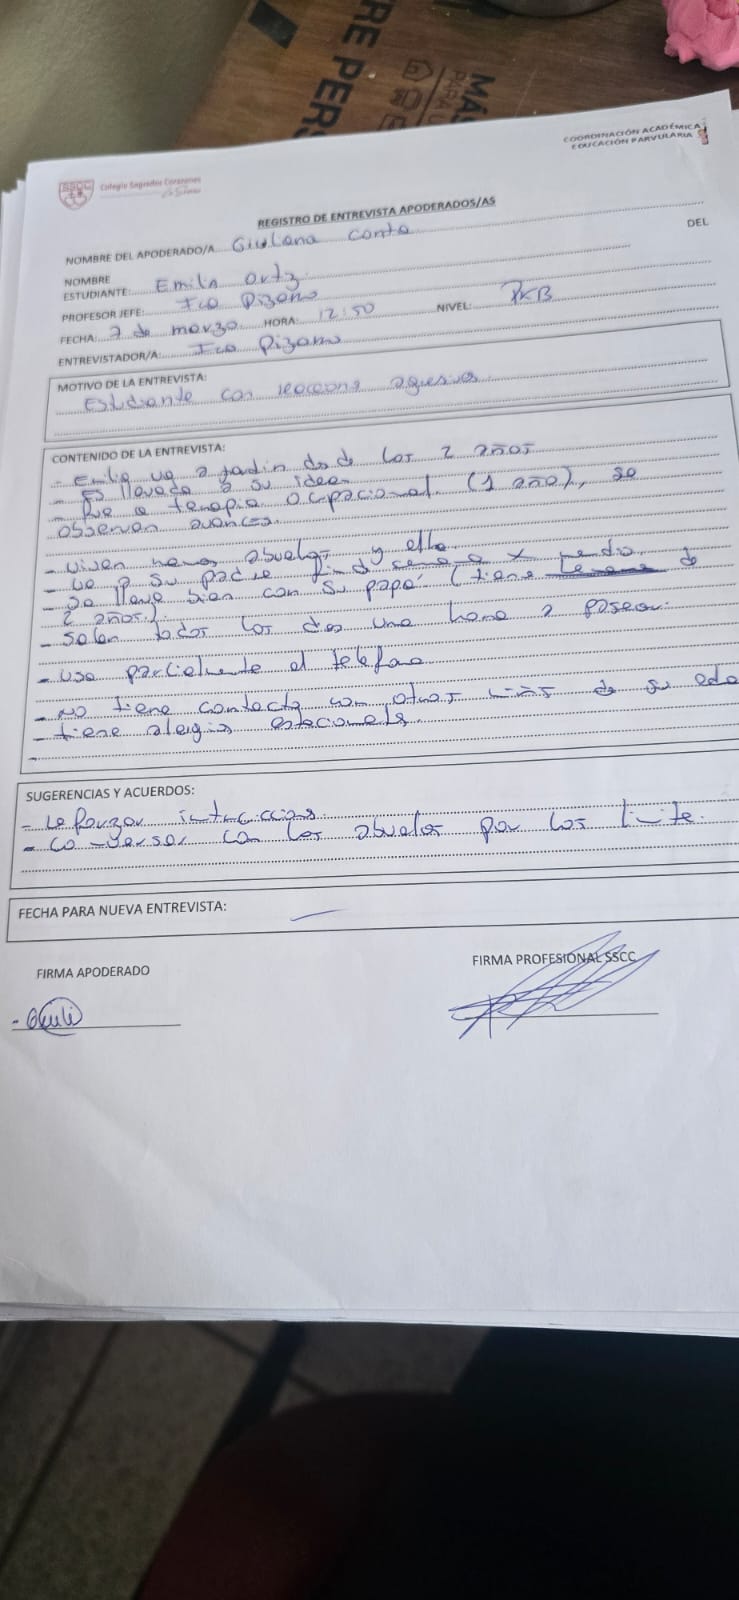 RE PERS
MÁS
PARA
SSCC
Colegio Sagrados Corazones
COORDINACIÓN ACADÉMICA
EDUCACIÓN PARVULARIA
REGISTRO DE ENTREVISTA APODERADOS/AS
NOMBRE DEL APODERADO/A Giuliana Conta
DEL
NOMBRE
ESTUDIANTE: Emilia Ortiz
PROFESOR JEFE: Fco Pizarro
FECHA: 7 de marzo HORA: 12:50 NIVEL: PKB
ENTREVISTADOR/A: Fco Pizarro
MOTIVO DE LA ENTREVISTA:
Estudiante con reacciones agresivas
CONTENIDO DE LA ENTREVISTA:
- Emilia va a jardín desde los 2 años
- Es llevada a su idea
- Fue a terapia ocupacional (1 año), se
observan avances.
- viven abuelos y ella
- Ve a su padre find semana x medio
- Se lleva bien con su papá (tiene de
2 años).
- Salen todos los dias una hora a pasear.
- Usa parcialmente el teléfono
- No tiene contacto con otros de su edad
- tiene alergias estacionales
-
SUGERENCIAS Y ACUERDOS:
- Reforzar instrucciones.
- Conversar con los abuelos por los limite.
FECHA PARA NUEVA ENTREVISTA: —
FIRMA APODERADO
FIRMA PROFESIONAL SSCC
- Giuli